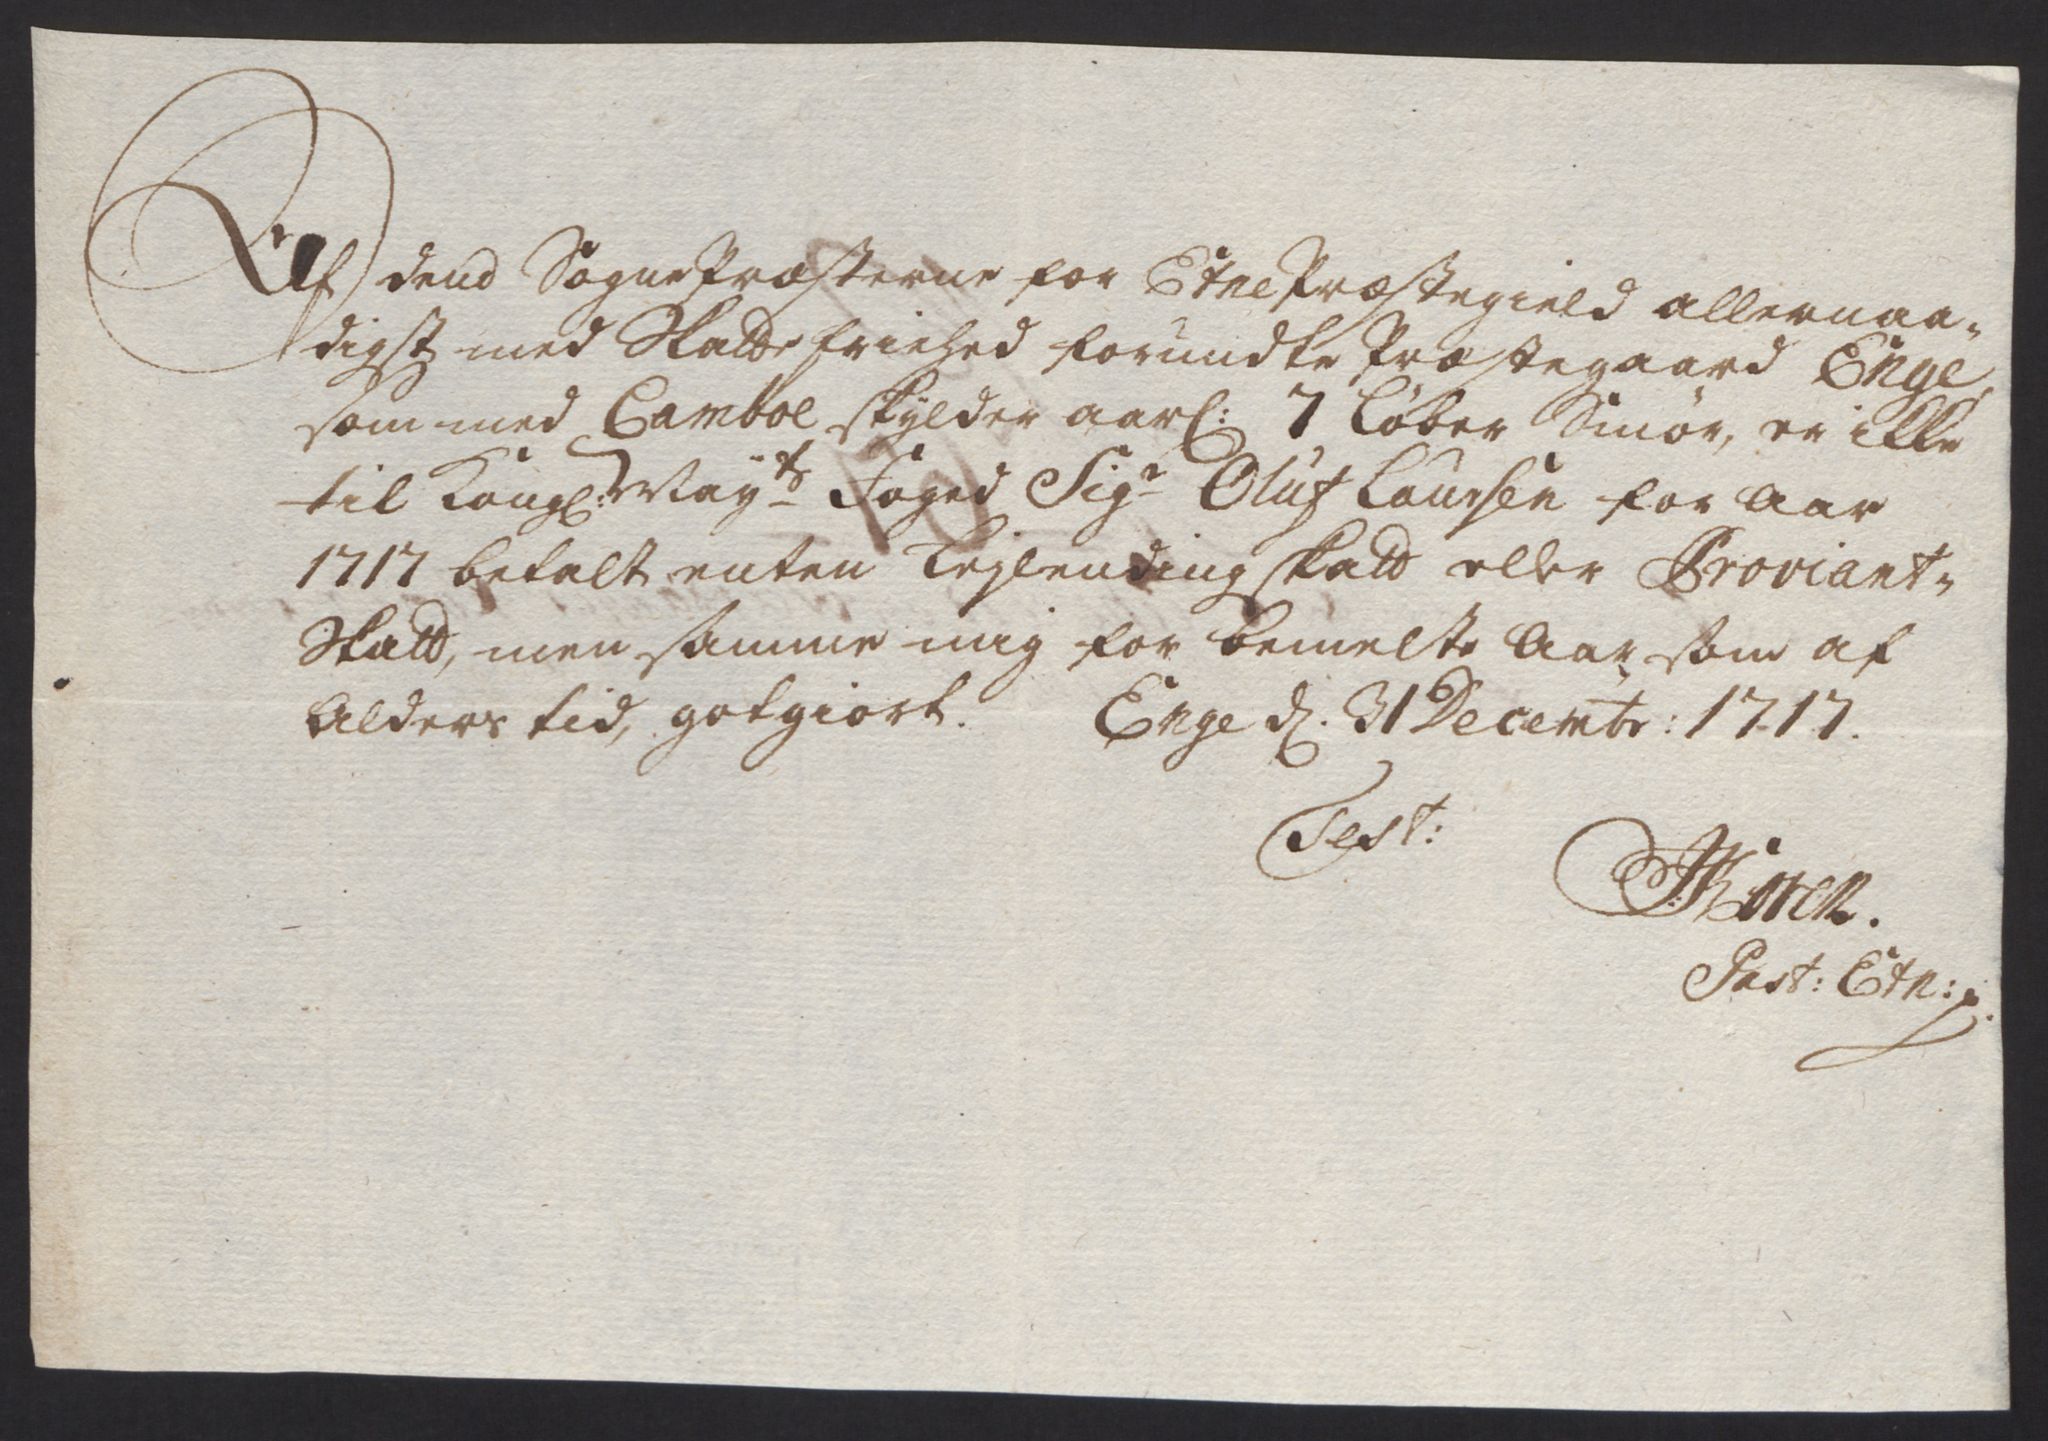 Af dend Sogne Præsterne for Etne Præstegield allernaa-
digst med Skatte friehed forundte Præstegaard Enge,
som med Camboe skylder aarl: 7 Løber Smør, er ikke
til Kongl: May.ts Foged Sig.r Oluf Laursen for Aar
1717 betalt enten Lejlending skatt eller Proviant-
Skatt, men samme mig for bemelte Aar som af
Alders tid, gotgiort. Enge d. 31 Decembr: 1717.
Test:
Past: Etn: